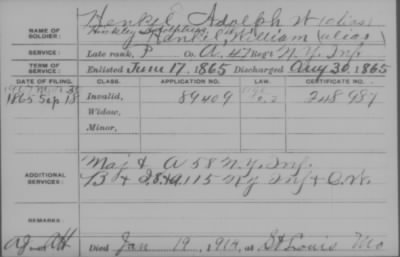 NAME OF SOLDIER: Henkel, Adolph W (alias)
Hinkley Adolphus,
Hankel William (alias)
SERVICE: Late rank, P Co. A, 47 Reg't N.Y. Inf
TERM OF SERVICE: Enlisted June 17, 1865 Discharged Aug 30, 1865
DATE OF FILING. CLASS. APPLICATION NO. CERTIFICATE NO.
1865 Sep 18 Invalid, 89409 248987
Widow,
Minor,
ADDITIONAL SERVICES: Maj & A 58 N.Y. Inf.
B & 115 N.Y. Inf &
REMARKS:
Died Jan 19, 1914, at St Louis Mo